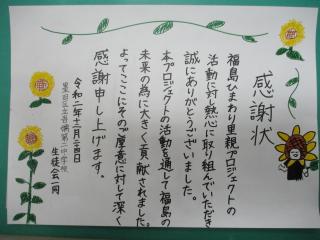 感謝状
福島ひまわり里親プロジェクトの
活動に対し熱心に取り組んでいただき
誠にありがとうございました。
本プロジェクトの活動を通して福島の
未来の為に大きく貢献されました。
よってここにそのご厚意に対して深く
感謝申し上げます。
令和二年十二月二十四日
墨田区立吾嬬第二中学校
生徒会一同